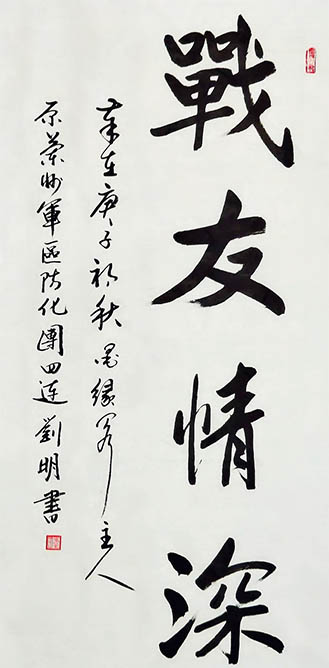 戰友情深
岁在庚子初秋墨缘阁主人
原蘭州軍區防化團四连劉明書